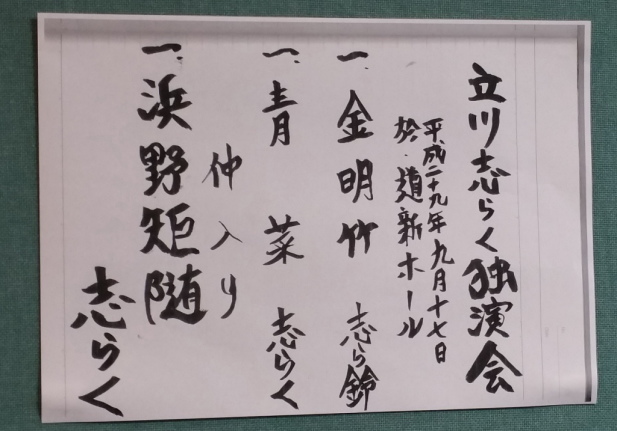 立川志らく独演会
平成二十九年九月十七日
於・道新ホール
一、金明竹 志ら鈴
一、青菜 志らく
仲入り
一、浜野矩随
志らく